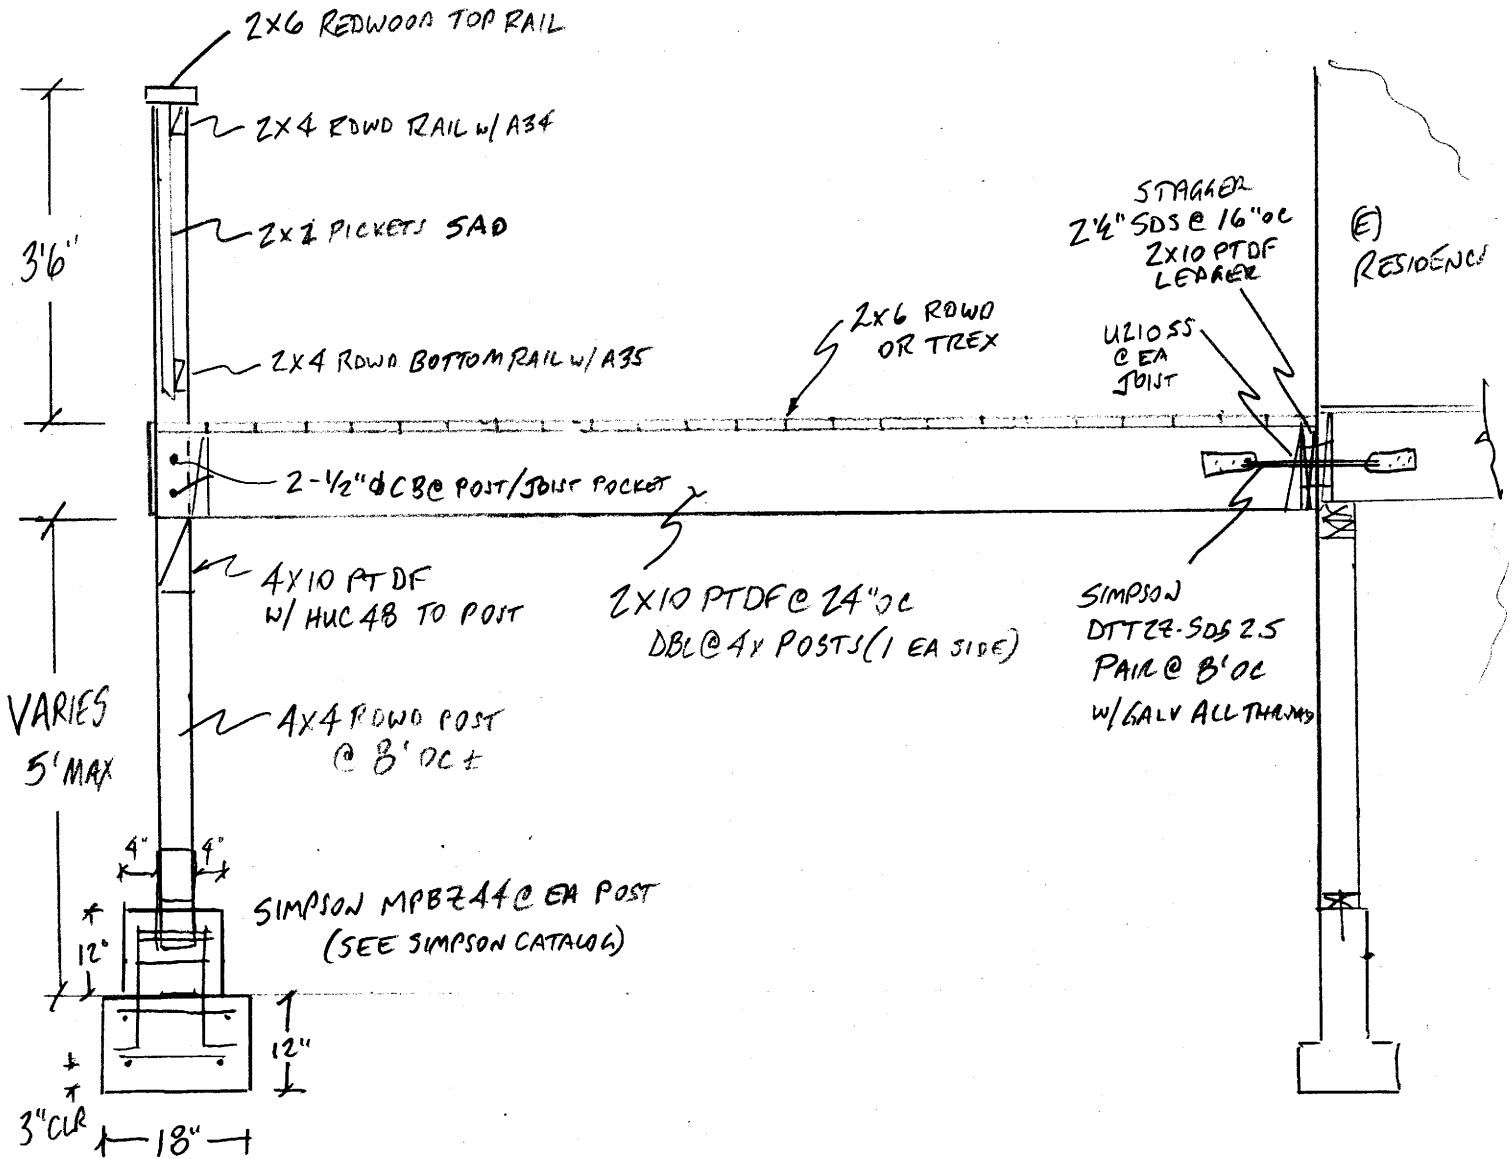 2X6 REDWOOD TOP RAIL
2X4 RDWD RAIL W/ A34
2X2 PICKETS SAD
3'6"
2X4 RDWD BOTTOM RAIL W/ A35
2X6 RDWD
OR TREX
STAGGER
2½" SDS @ 16" OC
2X10 PTDF
LEDGER
U210 SS
@ EA
JOIST
(E)
RESIDENCE
2-½"ø CB @ POST/JOIST POCKET
4X10 PTDF
W/ HUC48 TO POST
2X10 PTDF @ 24" OC
DBL @ 4X POSTS (1 EA SIDE)
SIMPSON
DTT2Z-SDS 2.5
PAIR @ 8' OC
W/ GALV ALL THREAD
VARIES
5' MAX
4X4 RDWD POST
@ 8' OC ±
4" 4"
SIMPSON MPBZ44 @ EA POST
(SEE SIMPSON CATALOG)
12"
12"
3" CLR
18"